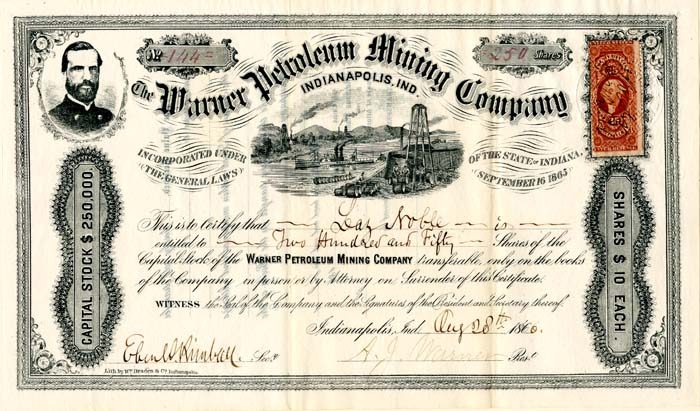 No 144 250 Shares
The Warner Petroleum Mining Company
INDIANAPOLIS, IND.
INCORPORATED UNDER THE GENERAL LAWS OF THE STATE OF INDIANA,
SEPTEMBER 16 1865
CAPITAL STOCK $ 250,000.
SHARES $ 10 EACH.
This is to Certify that Laz Noble is
entitled to Two Hundred and Fifty Shares of the
Capital Stock of the WARNER PETROLEUM MINING COMPANY transferable, only on the books
of the Company in person or by Attorney on Surrender of this Certificate.
WITNESS the Seal of the Company and the Signatures of the President and Secretary thereof.
Indianapolis, Ind. Aug 28th 186
Secy A. J. Warner Prest
Lith. by Wm. Braden & Co. Indianapolis.